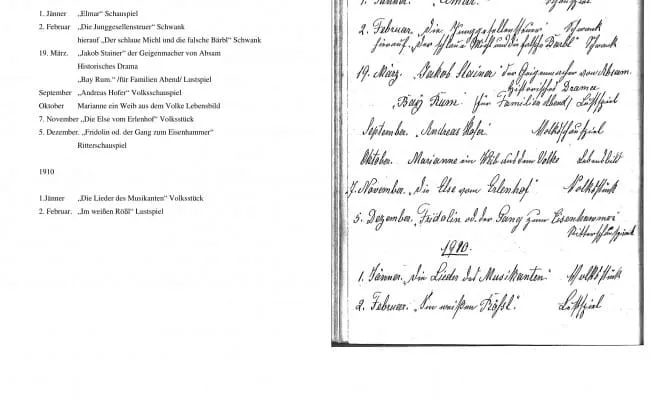 1. Jänner „Elmar“ Schauspiel
2. Februar „Die Junggesellensteuer“ Schwank
hierauf „Der schlaue Michl und die falsche Bärbl“ Schwank
19. März. „Jakob Stainer“ der Geigenmacher von Absam
Historisches Drama
„Bay Rum.“ /für Familien Abend/ Lustspiel
September „Andreas Hofer“ Volksschauspiel
Oktober Marianne ein Weib aus dem Volke Lebensbild
7. November „Die Else vom Erlenhof“ Volksstück
5. Dezember. „Fridolin od. der Gang zum Eisenhammer“
Ritterschauspiel
1910
1.Jänner „Die Lieder des Musikanten“ Volksstück
2. Februar. „Im weißen Rößl“ Lustspiel
1. Jänner. „Elmar.“ Schauspiel
2. Februar. „Die Junggesellensteuer“ Schwank
hierauf „Der schlaue Michl und die falsche Bärbl“ Schwank
19. März. „Jakob Stainer“ der Geigenmacher von Absam.
Historisches Drama
„Bay Rum.“ /für Familienabend/ Lustspiel
September. „Andreas Hofer“ Volksschauspiel
Oktober. Marianne ein Weib aus dem Volke Lebensbild
7. November. „Die Else vom Erlenhof“ Volksstück
5. Dezember. „Fridolin od. der Gang zum Eisenhammer“
Ritterschauspiel
1910.
1. Jänner. „Die Lieder des Musikanten.“ Volksstück
2. Februar. „Im weißen Rößl.“ Lustspiel